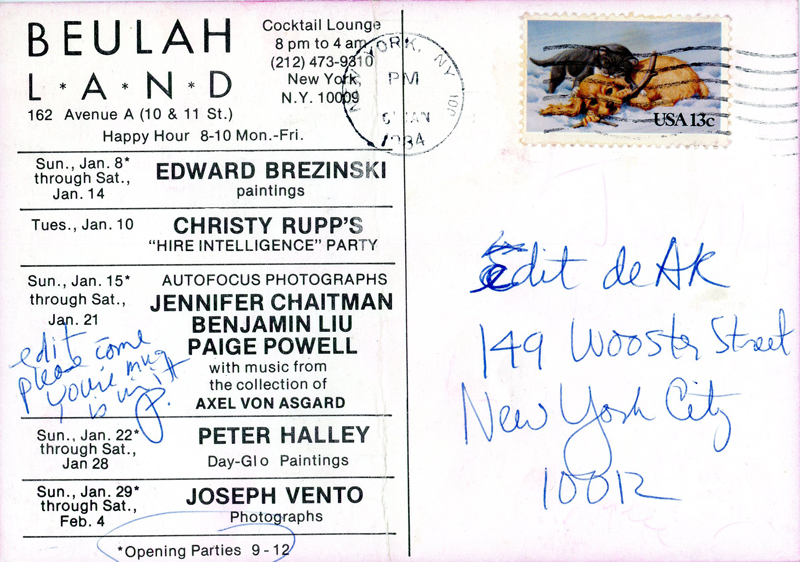 BEULAH
L*A*N*D
162 Avenue A (10 & 11 St.)
Cocktail Lounge
8 pm to 4 am
(212) 473-9310
New York,
N.Y. 10009
Happy Hour 8-10 Mon.-Fri.
Sun., Jan. 8*
through Sat.,
Jan. 14
EDWARD BREZINSKI
paintings
Tues., Jan. 10
CHRISTY RUPP'S
"HIRE INTELLIGENCE" PARTY
Sun., Jan. 15*
through Sat.,
Jan. 21
AUTOFOCUS PHOTOGRAPHS
JENNIFER CHAITMAN
BENJAMIN LIU
PAIGE POWELL
with music from
the collection of
AXEL VON ASGARD
edit come
please
you're mug
is in it
P.
Sun., Jan. 22*
through Sat.,
Jan 28
PETER HALLEY
Day-Glo Paintings
Sun., Jan. 29*
through Sat.,
Feb. 4
JOSEPH VENTO
Photographs
*Opening Parties 9-12
NEW YORK, NY 100
PM
JAN
1984
USA 13c
Edit deAK
149 Wooster Street
New York City
10012